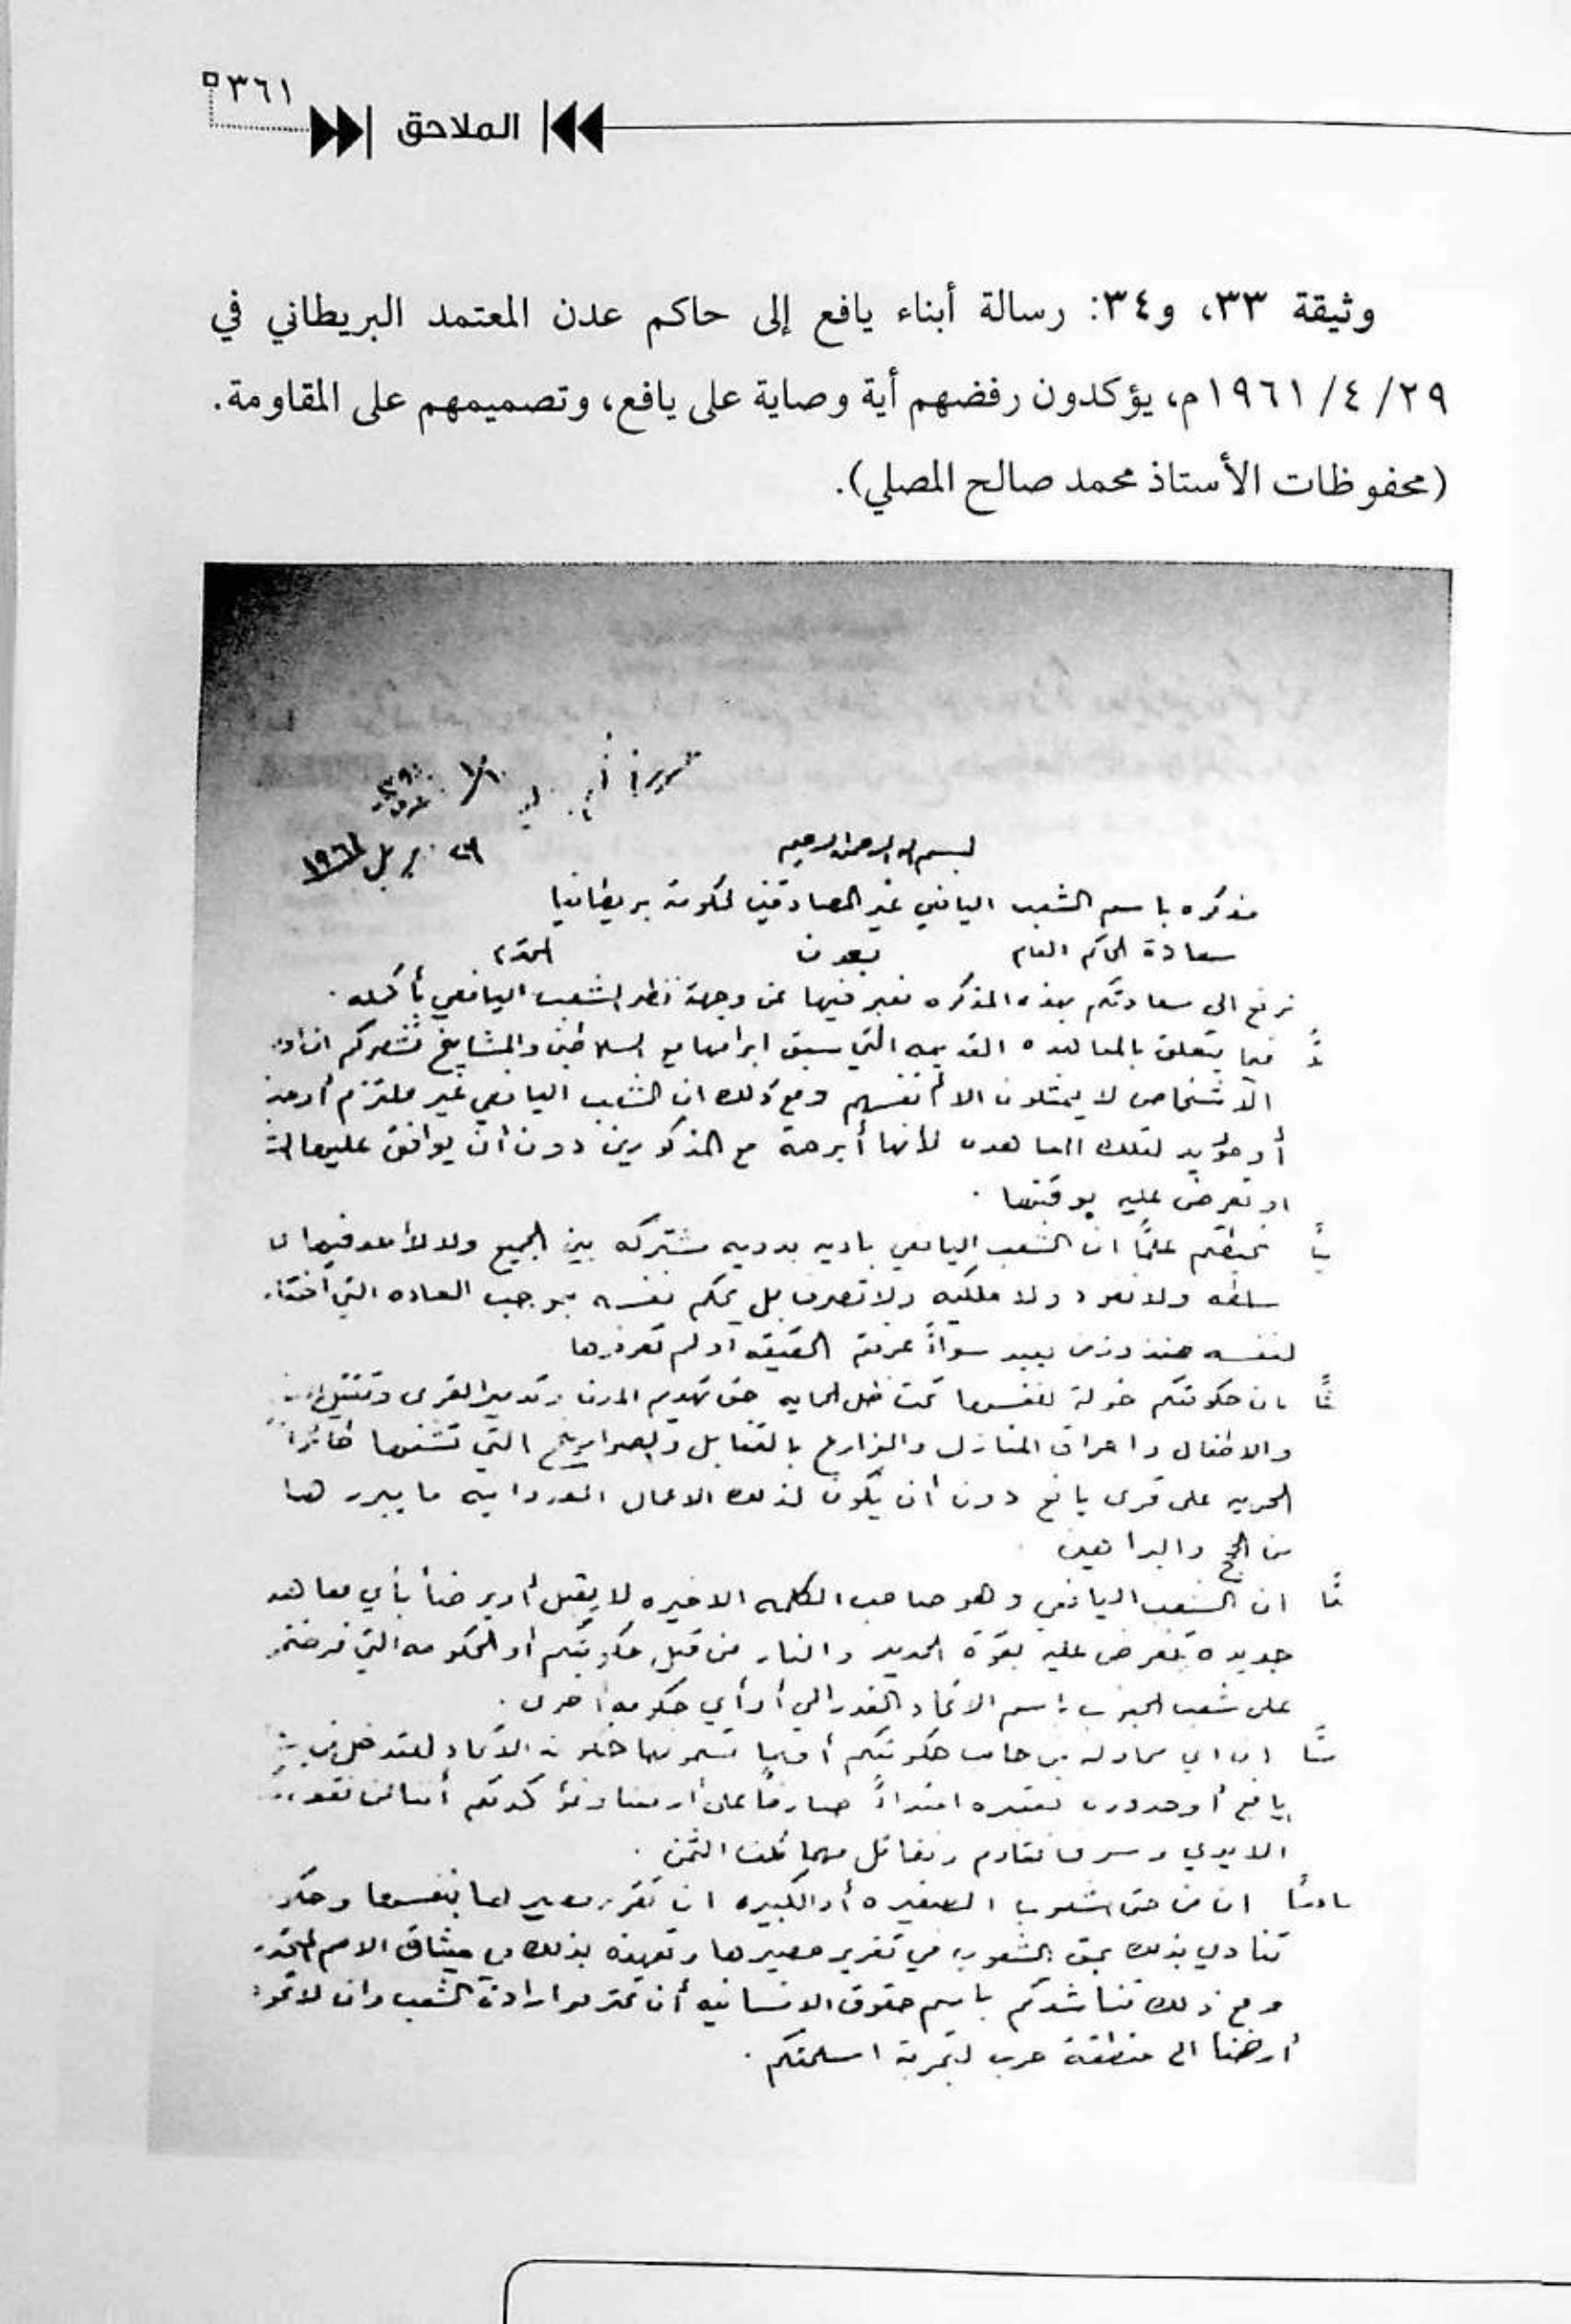 ٣٦١
الملاحق
وثيقة ٣٣، و٣٤: رسالة أبناء يافع إلى حاكم عدن المعتمد البريطاني في
٢٩/ ٤/ ١٩٦١م، يؤكدون رفضهم أية وصاية على يافع، وتصميمهم على المقاومة.
(محفوظات الأستاذ محمد صالح المصلي).
بسم الله الرحمن الرحيم
١٩٦١
مذكره باسم الشعب اليافعي غير الصادقين لحكومة بريطانيا
سعادة الحاكم العام بعدن المحترم
نرفع الى سعادتكم بهذه المذكره نعبر فيها عن وجهة نظر الشعب اليافعي بأكمله.
فيما يتعلق بالمعاهده القديمه التي سبق ابرامها مع السلاطين والمشايخ نشعركم ان
الأشخاص لا يمثلون الا أنفسهم ومع ذلك ان الشعب اليافعي غير ملتزم
أو مؤيد لتلك المعاهده لأنها أبرمة مع المذكورين دون أن يوافق عليها
او تعرض عليه بوقتها.
نحيطكم علماً ان الشعب اليافعي باديه بدويه مشتركه بين الجميع ولا
سلطه ولا نفوذ ولا ملكيه ولا تصرف بل يحكم نفسه بموجب العاده التي
لنفسه منذ زمن بعيد سواءً عرفتم الحقيقه او لم تعرفوها
ثاً بان حكومتكم خولة لنفسها تحت ظل الحمايه حق تهديم المدن وتدمير القرى وتقتيل
والاطفال واحراق المنازل والمزارع بالقنابل والصواريخ التي تشنها
الحربيه على قرى يافع دون أن يكون لذلك الاعمال العدوانيه ما يبرر هما
من الحجج والبراهين.
ان الشعب اليافعي وهو صاحب الكلمه الاخيره لا يقبل أو يرضأ بأي معاهده
جديده تفرض عليه بقوة الحديد والنار من قبل حكومتكم أو الحكومه التي
على شعب الجنوب باسم الاتحاد الفدرالي أو أي حكومه أخرى.
ان اي محاوله من جانب حكومتكم أو ما تسمونها حكومة الاتحاد للتدخل في
يافع أو حدوده نعتبره اعتداءً صارخاً على أرضنا ونؤكد لكم أننا لن
الايدي وسوف نقاوم ونقاتل مهما كلف الثمن.
سادساً ان من حق الشعوب الصغيره أو الكبيره ان تقرر مصيرها بنفسها
تنادي بذلك بحق الشعوب في تقرير مصيرها وتعهدة بذلك في ميثاق الامم المتحده
ومع ذلك نناشدكم باسم حقوق الانسانيه أن تحترموا ارادة الشعب وان لا
أرضنا الى منطقة حرب لتجربة اسلحتكم.